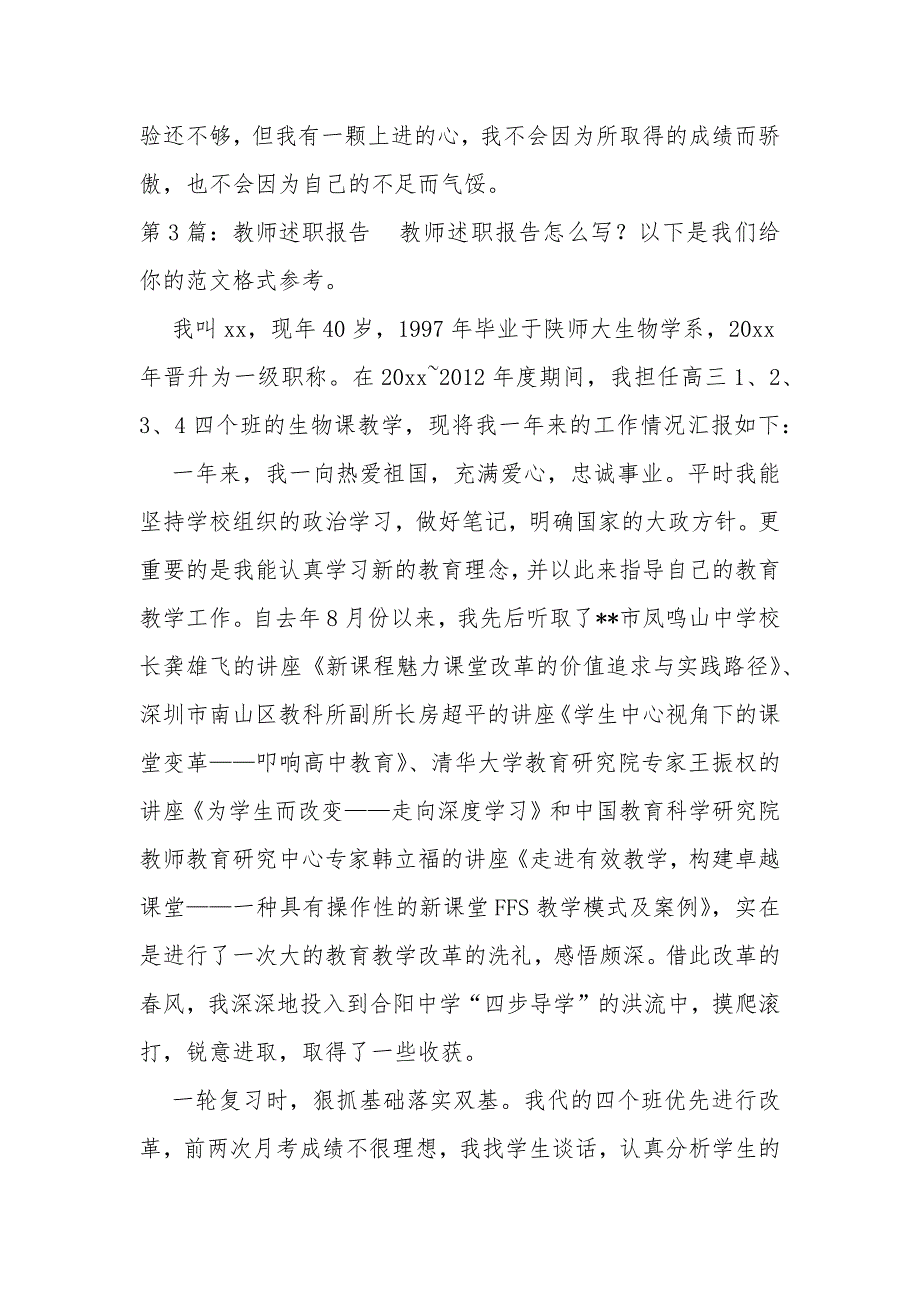 验还不够，但我有一颗上进的心，我不会因为所取得的成绩而骄
傲，也不会因为自己的不足而气馁。
第3篇：教师述职报告　教师述职报告怎么写？以下是我们给
你的范文格式参考。
我叫xx，现年40岁，1997年毕业于陕师大生物学系，20xx
年晋升为一级职称。在20xx~2012年度期间，我担任高三1、2、
3、4四个班的生物课教学，现将我一年来的工作情况汇报如下：
一年来，我一向热爱祖国，充满爱心，忠诚事业。平时我能
坚持学校组织的政治学习，做好笔记，明确国家的大政方针。更
重要的是我能认真学习新的教育理念，并以此来指导自己的教育
教学工作。自去年8月份以来，我先后听取了**市凤鸣山中学校
长龚雄飞的讲座《新课程魅力课堂改革的价值追求与实践路径》、
深圳市南山区教科所副所长房超平的讲座《学生中心视角下的课
堂变革——叩响高中教育》、清华大学教育研究院专家王振权的
讲座《为学生而改变——走向深度学习》和中国教育科学研究院
教师教育研究中心专家韩立福的讲座《走进有效教学，构建卓越
课堂——一种具有操作性的新课堂FFS教学模式及案例》，实在
是进行了一次大的教育教学改革的洗礼，感悟颇深。借此改革的
春风，我深深地投入到合阳中学“四步导学”的洪流中，摸爬滚
打，锐意进取，取得了一些收获。
一轮复习时，狠抓基础落实双基。我代的四个班优先进行改
革，前两次月考成绩不很理想，我找学生谈话，认真分析学生的